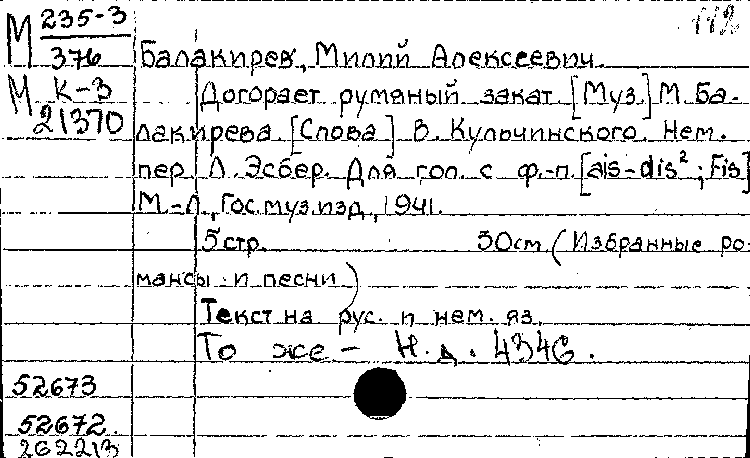 М 235-3
376
112
Балакирев, Милий Алексеевич.
М К-3
21370
Догорает румяный закат [Муз.] М. Ба-
лакирева. [Слова] В. Кульчинского. Нем.
пер. Л. Эсбер. Для гол. с ф.-п. [ais-dis²; Fis]
М.-Л., Гос. муз. изд., 1941.
5 стр. 30 см. (Избранные ро-
мансы и песни)
Текст на рус. и нем. яз.
То же - Н.д. 4346.
52673
52672.
262213